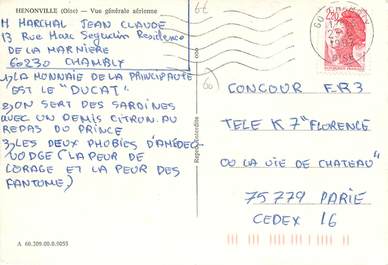 HENONVILLE (Oise) — Vue générale aérienne
M MARCHAL JEAN CLAUDE
13 Rue Marc Seguin Residence
DE LA MARNIERE
60230 CHAMBLY
1) LA MONNAIE DE LA PRINCIPAUTE
EST LE "DUCAT"
2) ON SERT DES SARDINES
AVEC UN DEMIS CITRON. AU
REPAS DU PRINCE
3) LES DEUX PHOBIES D'AMEDEC-
VODGE (LA PEUR DE
L'ORAGE ET LA PEUR DES
FANTOME)
A 60.209.00.0.0055
Reproduction interdite
60
OISE
2,20
CONCOUR FR3
TELE K7 "FLORENCE
OU LA VIE DE CHATEAU"
75779 PARIE
CEDEX 16